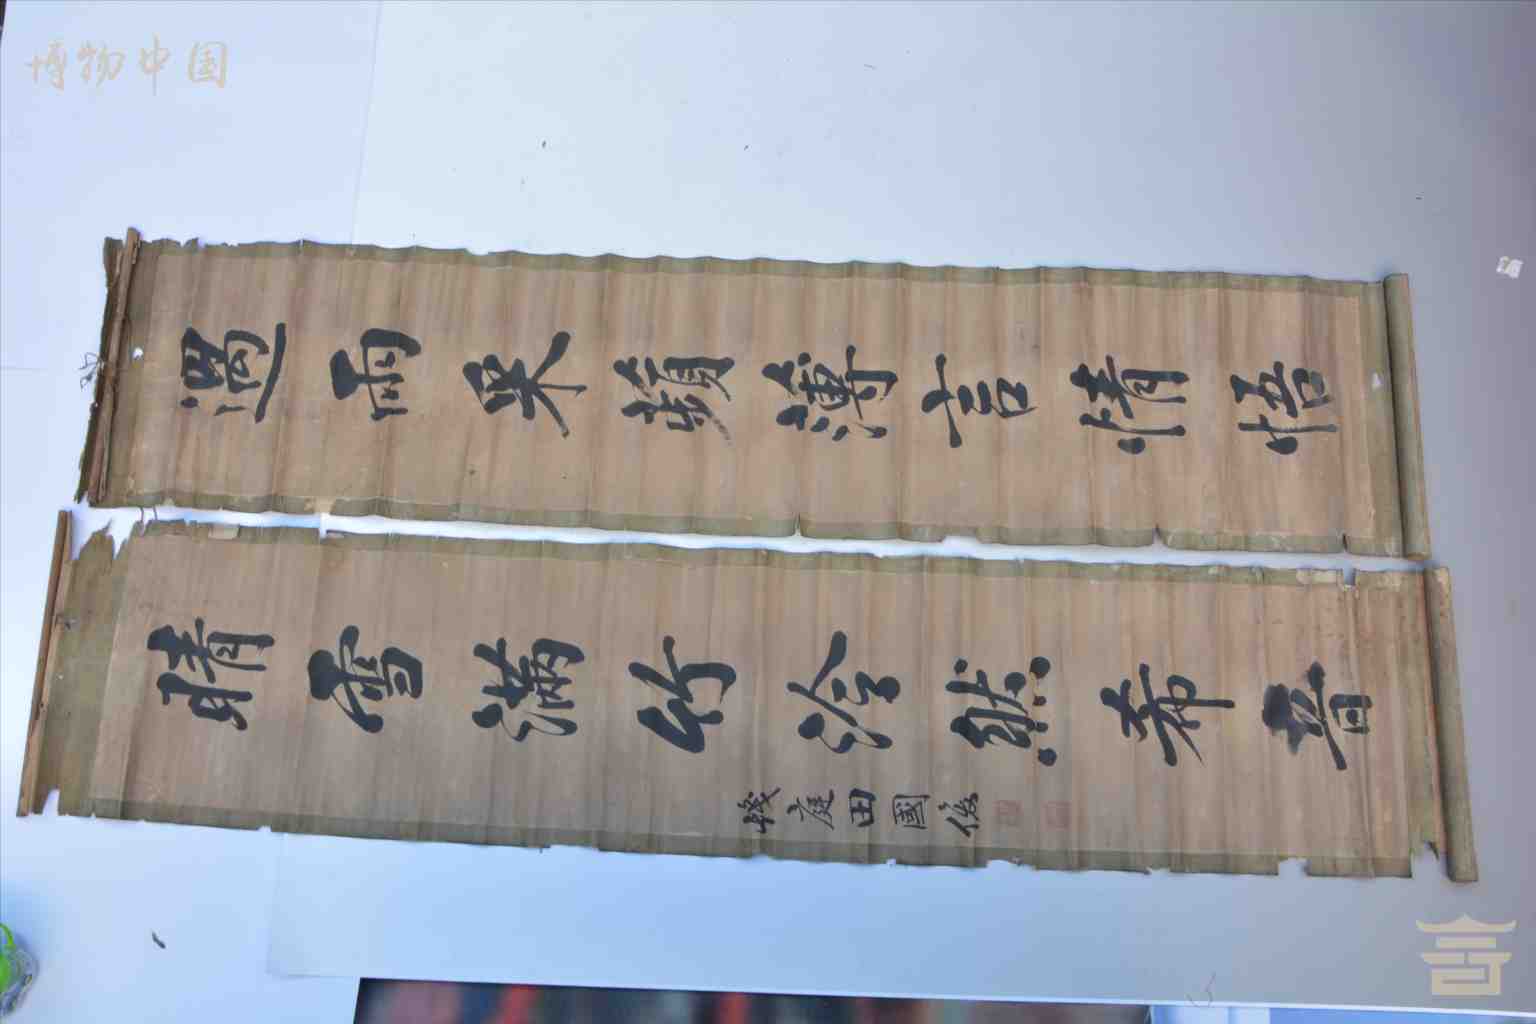 過雨采蘋薄言情悟
晴雪滿竹泠然希音
畿庭田國俊
博物中国